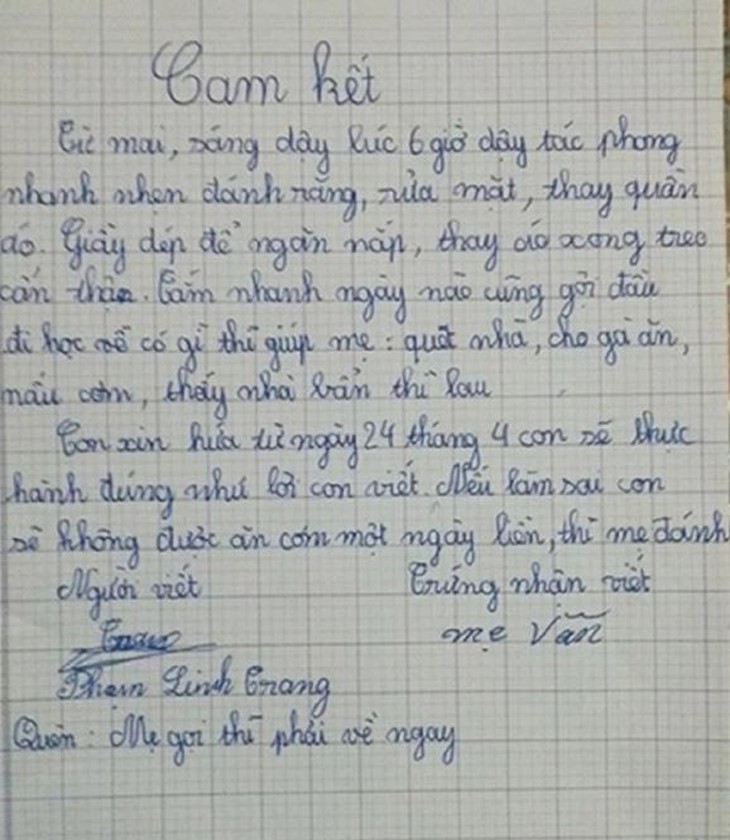 Cam kết
Từ mai, sáng dậy lúc 6 giờ dậy tác phong
nhanh nhẹn đánh răng, rửa mặt, thay quần
áo. Giầy dép để ngăn nắp, thay áo xong treo
cẩn thận. Tắm nhanh ngày nào cũng gội đầu
đi học về có gì thì giúp mẹ: quét nhà, cho gà ăn,
nấu cơm, thấy nhà bẩn thì lau
Con xin hứa từ ngày 24 tháng 4 con sẽ thực
hành đúng như lời con viết. Nếu làm sai con
sẽ không được ăn cơm một ngày liền, thì mẹ đánh
Người viết Chứng nhận viết
Trang mẹ Vân
Phạm Linh Trang
Quên: Mẹ gọi thì phải về ngay